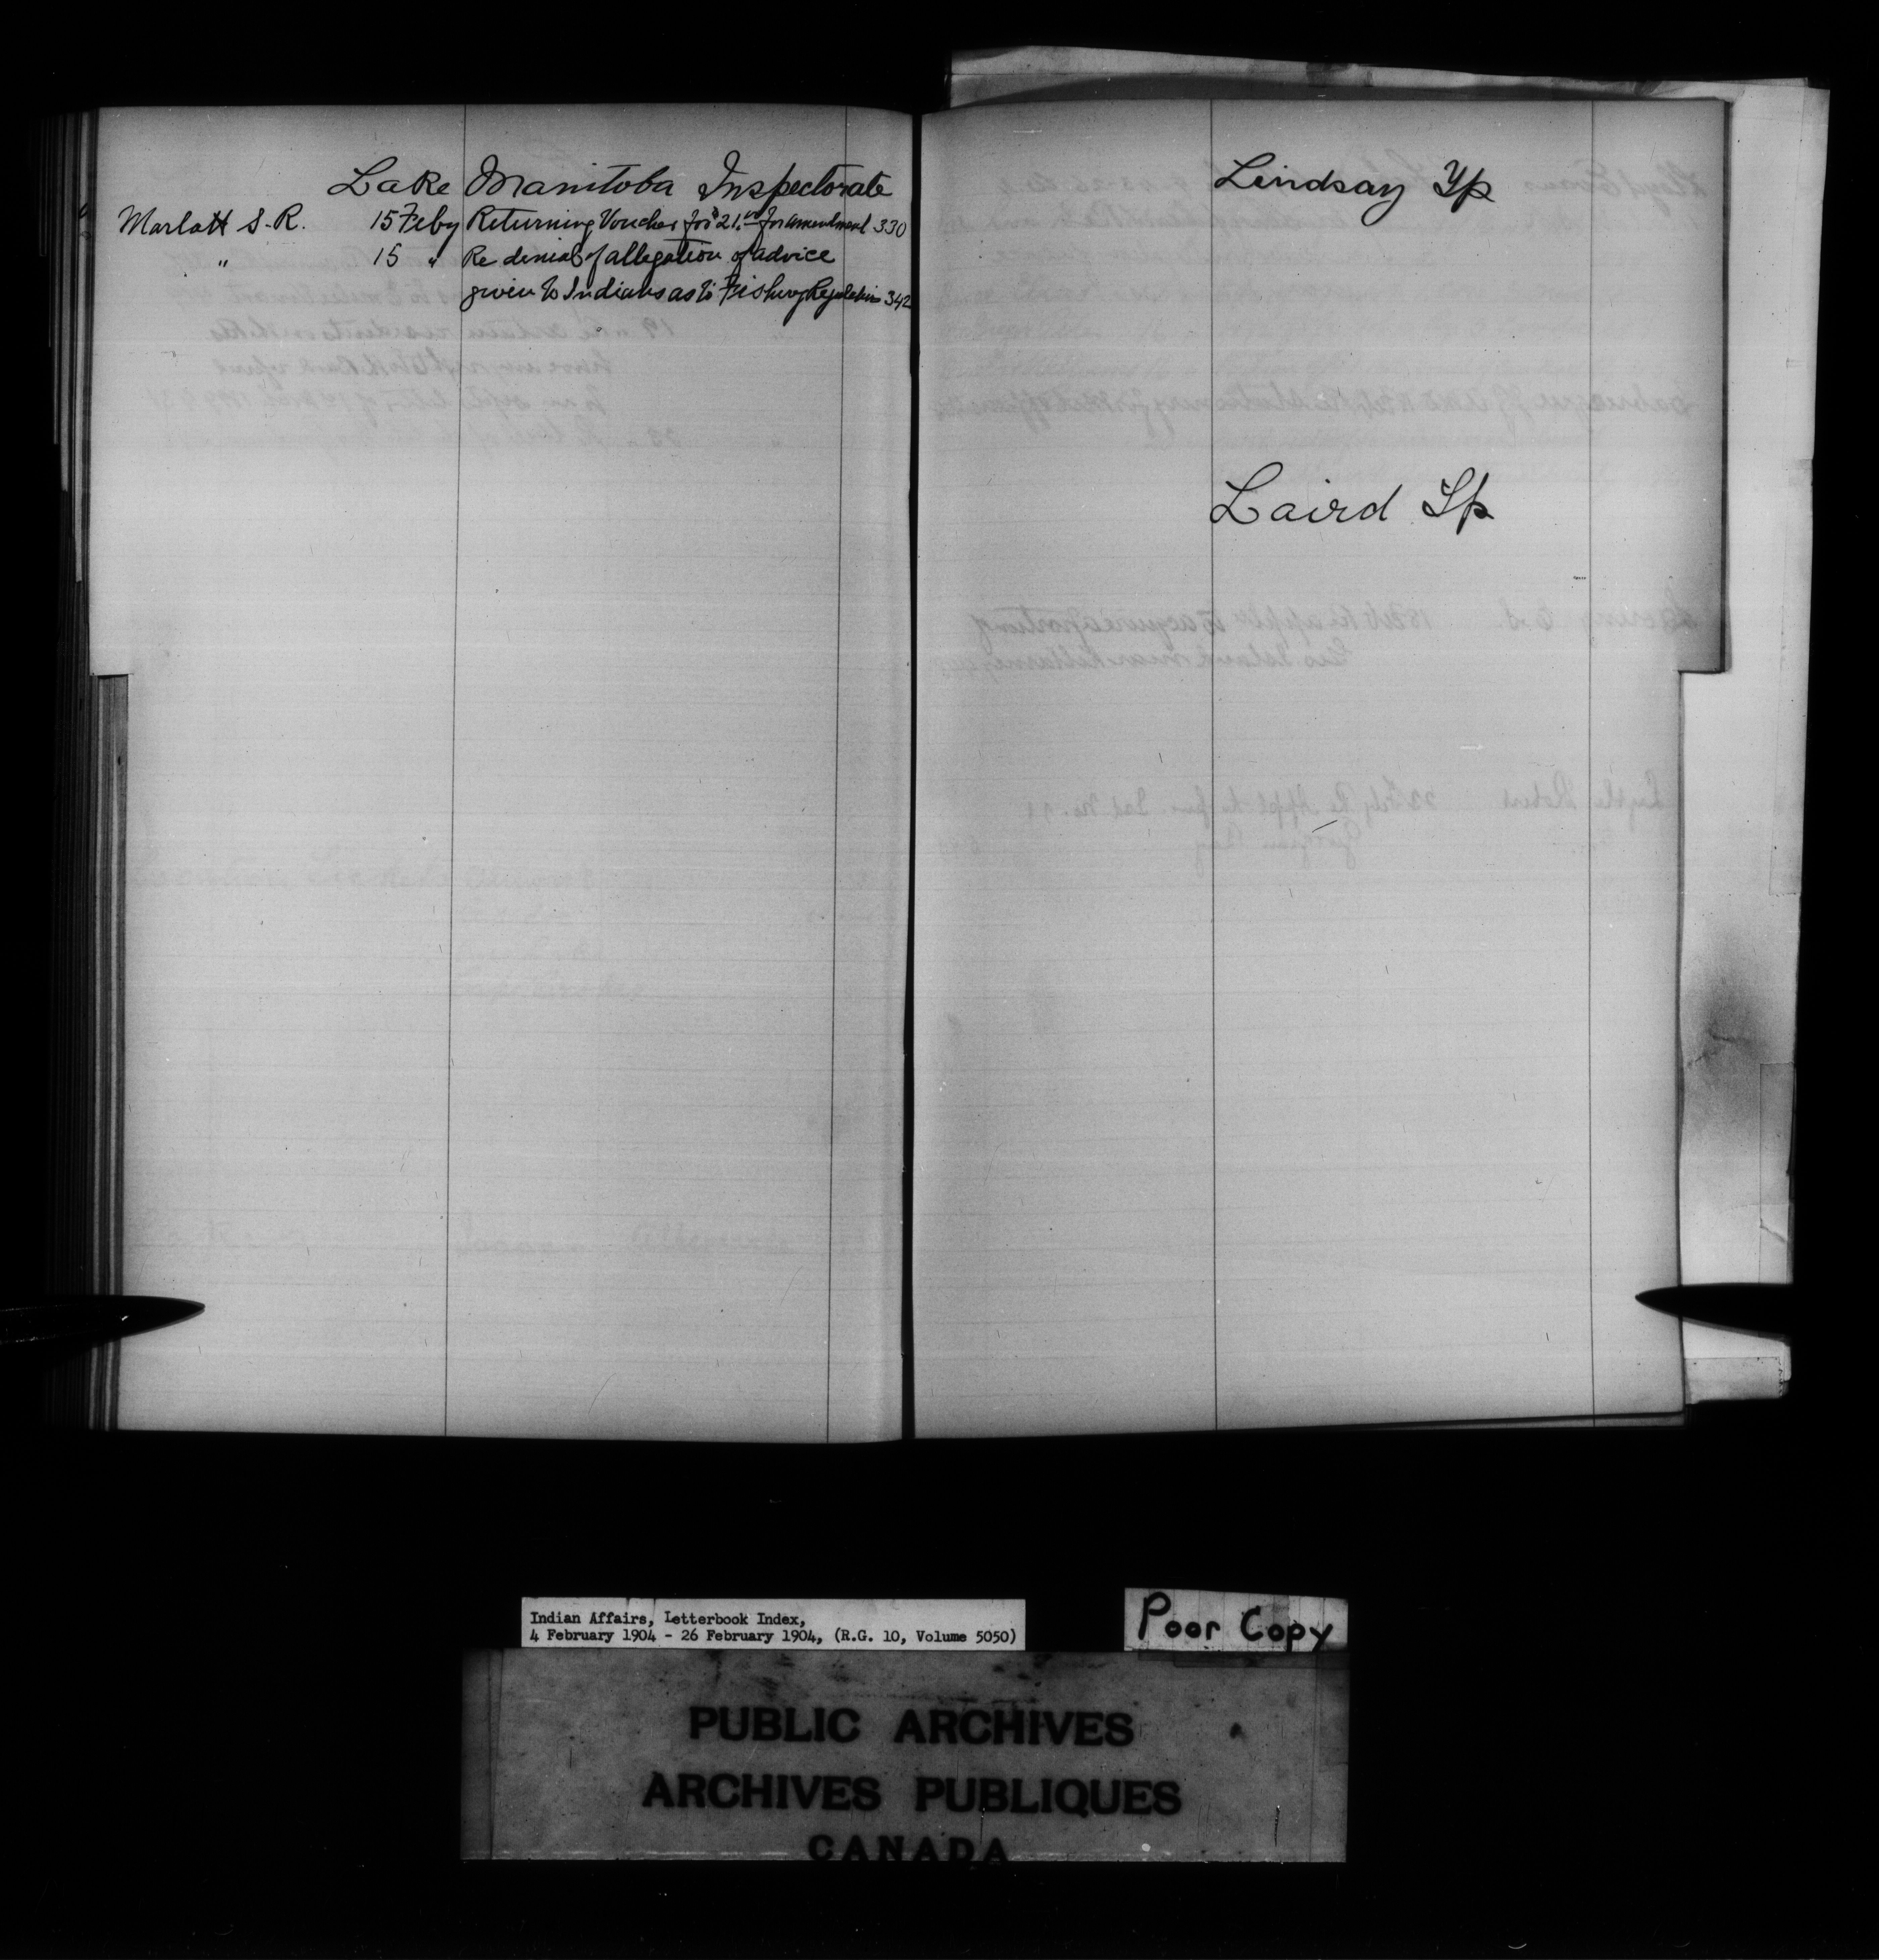 Lake Manitoba Inspectorate
Marlatt S. R. 15 Feby Returning Voucher for $21.00 for amendment 330
" 15 " Re denial of allegation of advice
given to Indians as to Fishery Regulations 342
Lindsay Tp
Laird Tp
Indian Affairs, Letterbook Index,
4 February 1904 - 26 February 1904, (R.G. 10, Volume 5050)
Poor Copy
PUBLIC ARCHIVES
ARCHIVES PUBLIQUES
CANADA